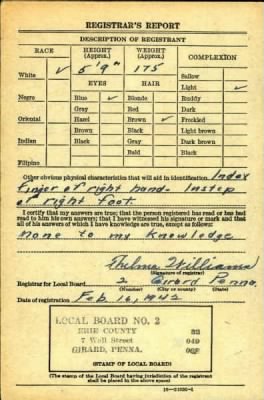 REGISTRAR'S REPORT
DESCRIPTION OF REGISTRANT
RACE HEIGHT (Approx.) WEIGHT (Approx.) COMPLEXION
White ✓ 5'9" 175 Sallow
EYES HAIR Light ✓
Negro Blue ✓ Blonde Ruddy
Gray Red Dark
Oriental Hazel Brown ✓ Freckled
Brown Black Light brown
Indian Black Gray Dark brown
Bald Black
Filipino
Other obvious physical characteristics that will aid in identification. Index
finger of right hand. Instep
of right foot.
I certify that my answers are true; that the person registered has read or has had
read to him his own answers; that I have witnessed his signature or mark and that
all of his answers of which I have knowledge are true, except as follows:
None to my Knowledge
Thelma Williams
(Signature of registrar)
Registrar for Local Board 2 Girard Penna.
(Number) (City or county) (State)
Date of registration Feb. 16, 1942
LOCAL BOARD NO. 2
ERIE COUNTY 32
7 Wall Street 049
GIRARD, PENNA. 002
(STAMP OF LOCAL BOARD)
(The stamp of the Local Board having jurisdiction of the registrant
shall be placed in the above space.)